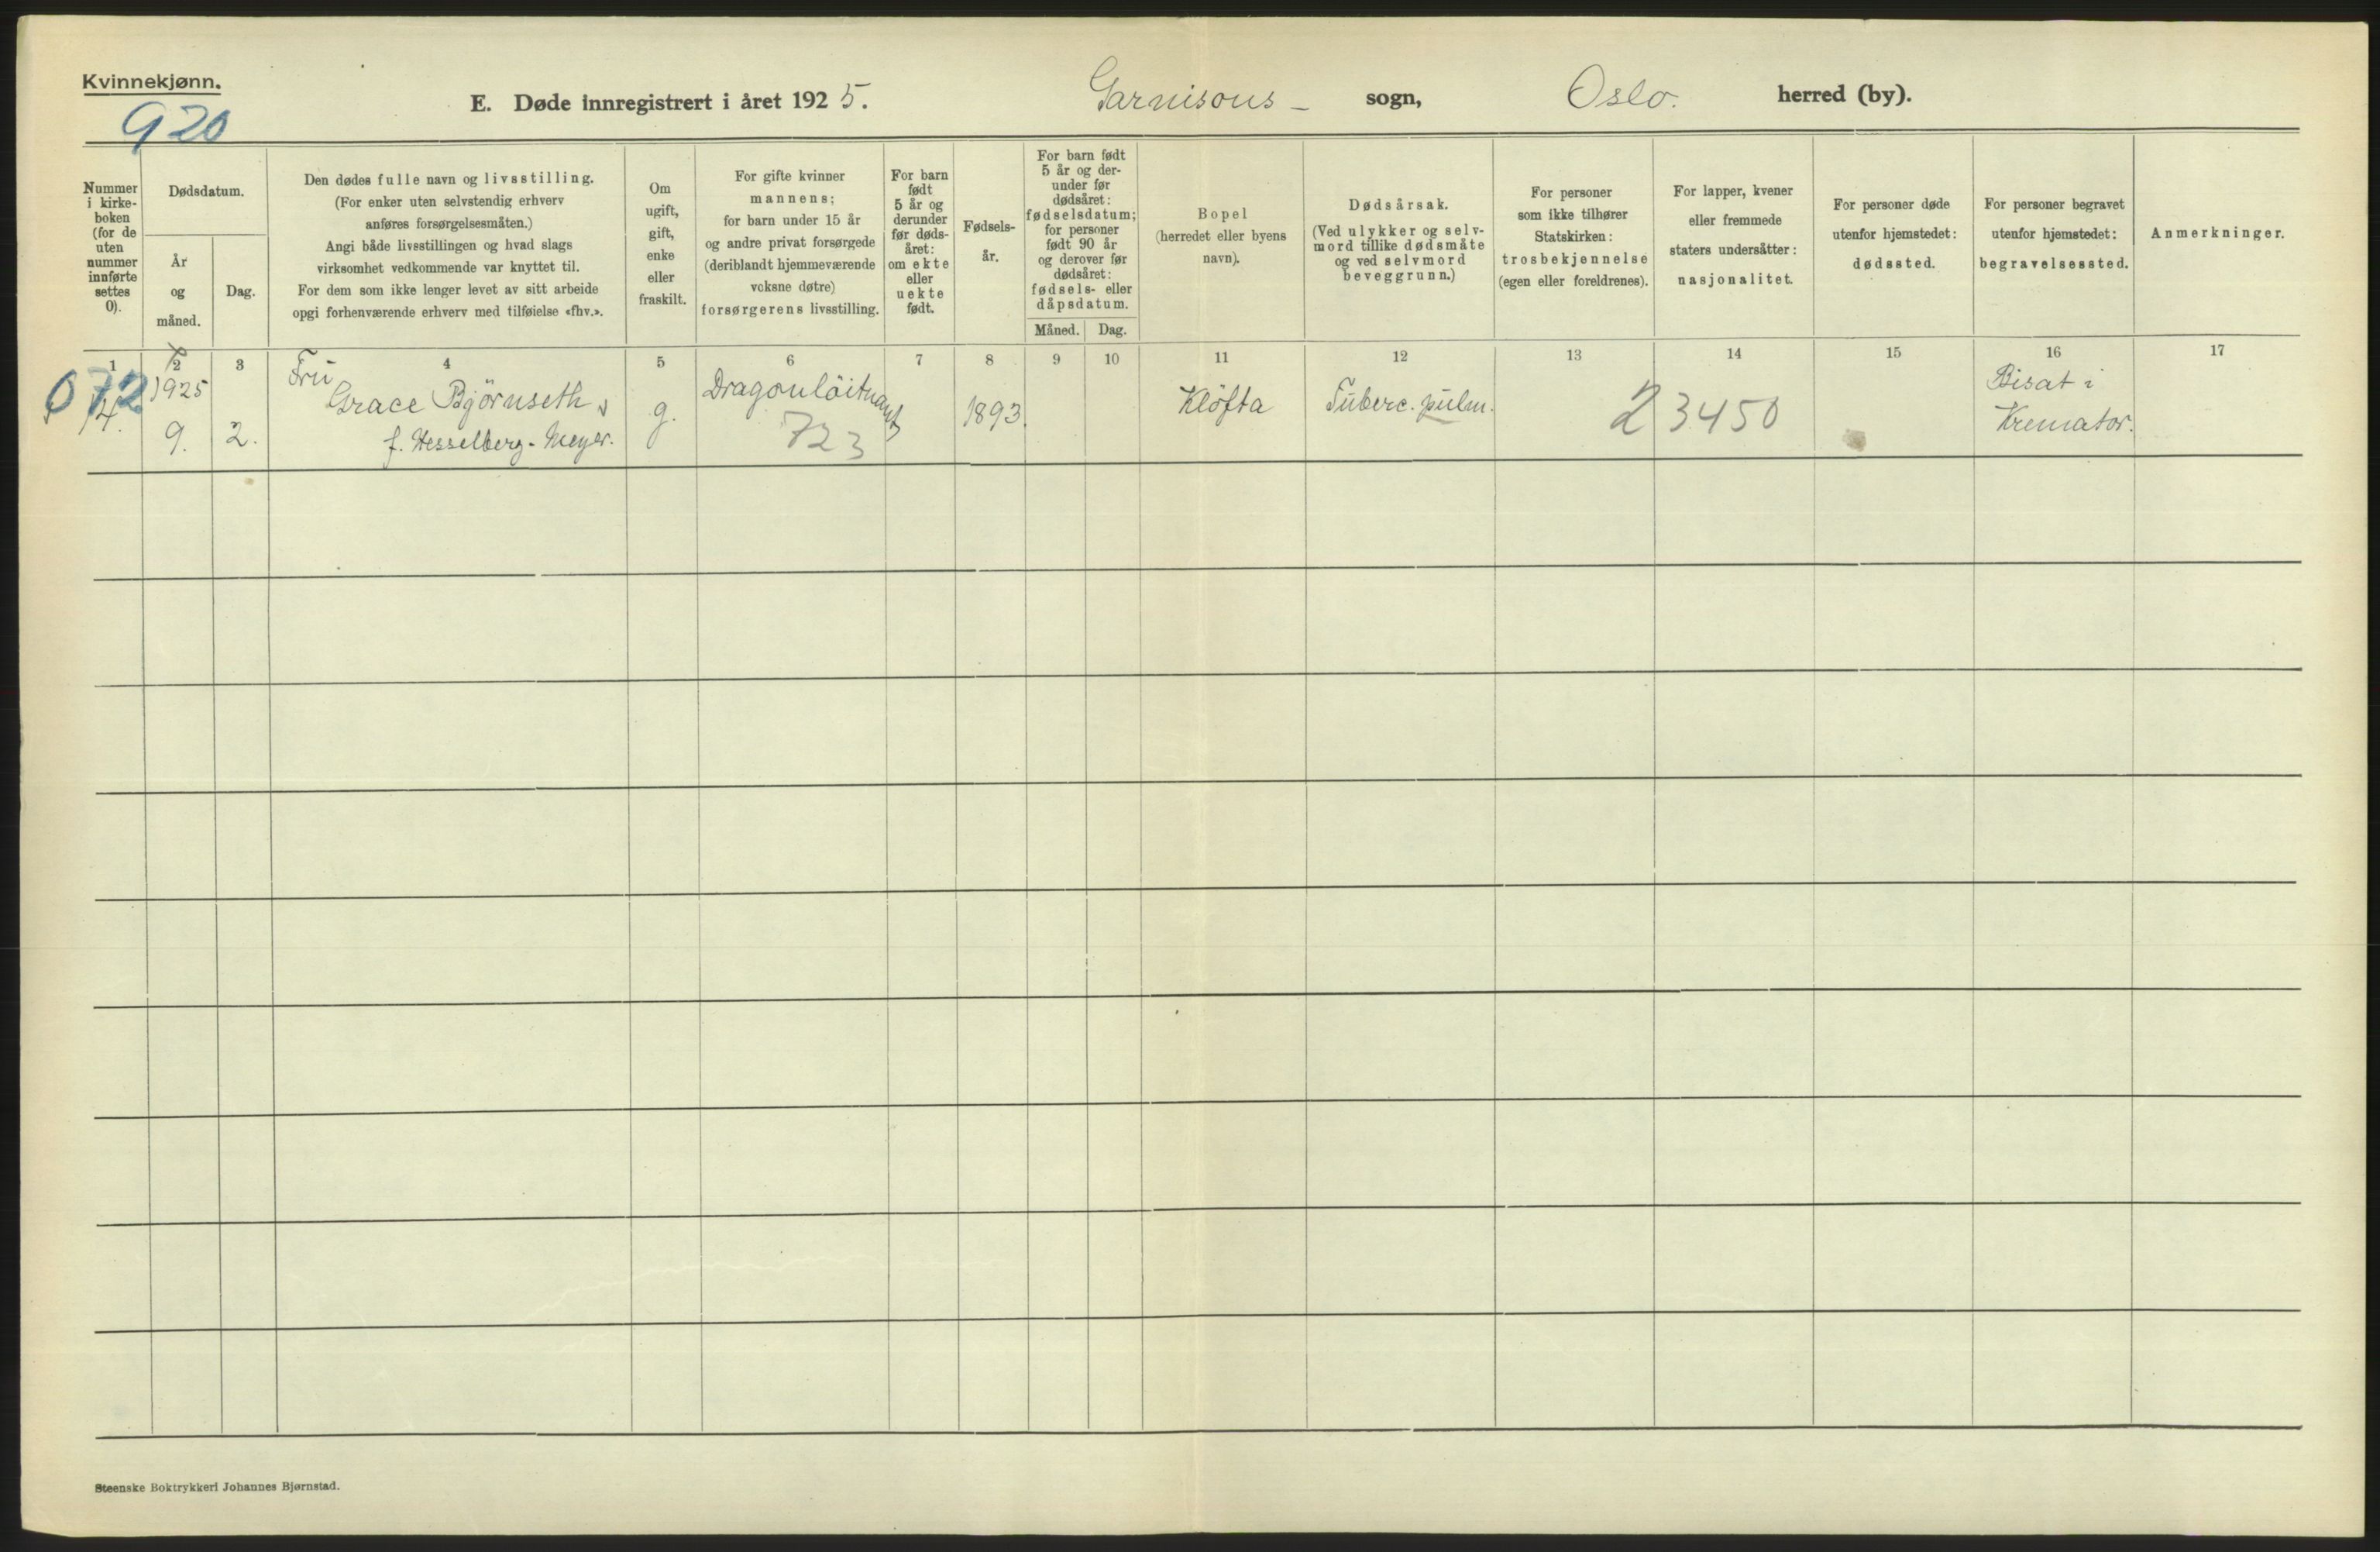 Kvinnekjønn.
920
E. Døde innregistrert i året 1925. Garnisons - sogn, Oslo. herred (by).
Nummer
i kirke-
boken
(for de
uten
nummer
innførte
settes
0).
Dødsdatum.
År
og
måned.
Dag.
Den dødes fulle navn og livsstilling.
(For enker uten selvstendig erhverv
anføres forsørgelsesmåten.)
Angi både livsstillingen og hvad slags
virksomhet vedkommende var knyttet til.
For dem som ikke lenger levet av sitt arbeide
opgi forhenværende erhverv med tilføielse «fhv.».
Om
ugift,
gift,
enke
eller
fraskilt.
For gifte kvinner
mannens;
for barn under 15 år
og andre privat forsørgede
(deriblandt hjemmeværende
voksne døtre)
forsørgerens livsstilling.
For barn
født
5 år og
derunder
før døds-
året:
om ekte
eller
uekte
født.
Fødsels-
år.
For barn født
5 år og der-
under før
dødsåret:
fødselsdatum;
for personer
født 90 år
og derover før
dødsåret:
fødsels- eller
dåpsdatum.
Måned. Dag.
Bopel
(herredet eller byens
navn).
Dødsårsak.
(Ved ulykker og selv-
mord tillike dødsmåte
og ved selvmord
beveggrunn.)
For personer
som ikke tilhører
Statskirken:
trosbekjennelse
(egen eller foreldrenes).
For lapper, kvener
eller fremmede
staters undersåtter:
nasjonalitet.
For personer døde
utenfor hjemstedet:
dødssted.
For personer begravet
utenfor hjemstedet:
begravelsessted.
Anmerkninger.
1 2 3 4 5 6 7 8 9 10 11 12 13 14 15 16 17
072
14.
1925
9.
2.
Frü
Grace Bjørnseth
f. Hesselberg-Meyer.
g.
Dragonlöitnant
723
1893.
Klöfta
Tüberc. pülm.
23450
Bisat i
Kremator.
Steenske Boktrykkeri Johannes Bjørnstad.